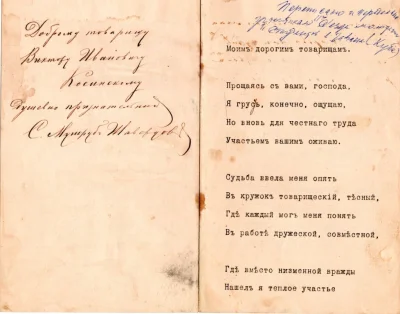 Доброму товарищу
Виктору Ивановичу
Косинскому
Душевно признательный
С.
Моимъ дорогимъ товарищамъ.
Прощаясь съ вами, господа,
Я грусть, конечно, ощущаю,
Но вновь для честнаго труда
Участьемъ вашимъ оживаю.
Судьба ввела меня опять
Въ кружокъ товарищескій, тѣсный,
Гдѣ каждый могъ меня понять
Въ работѣ дружеской, совмѣстной,
Гдѣ вмѣсто низменной вражды
Нашелъ я теплое участье